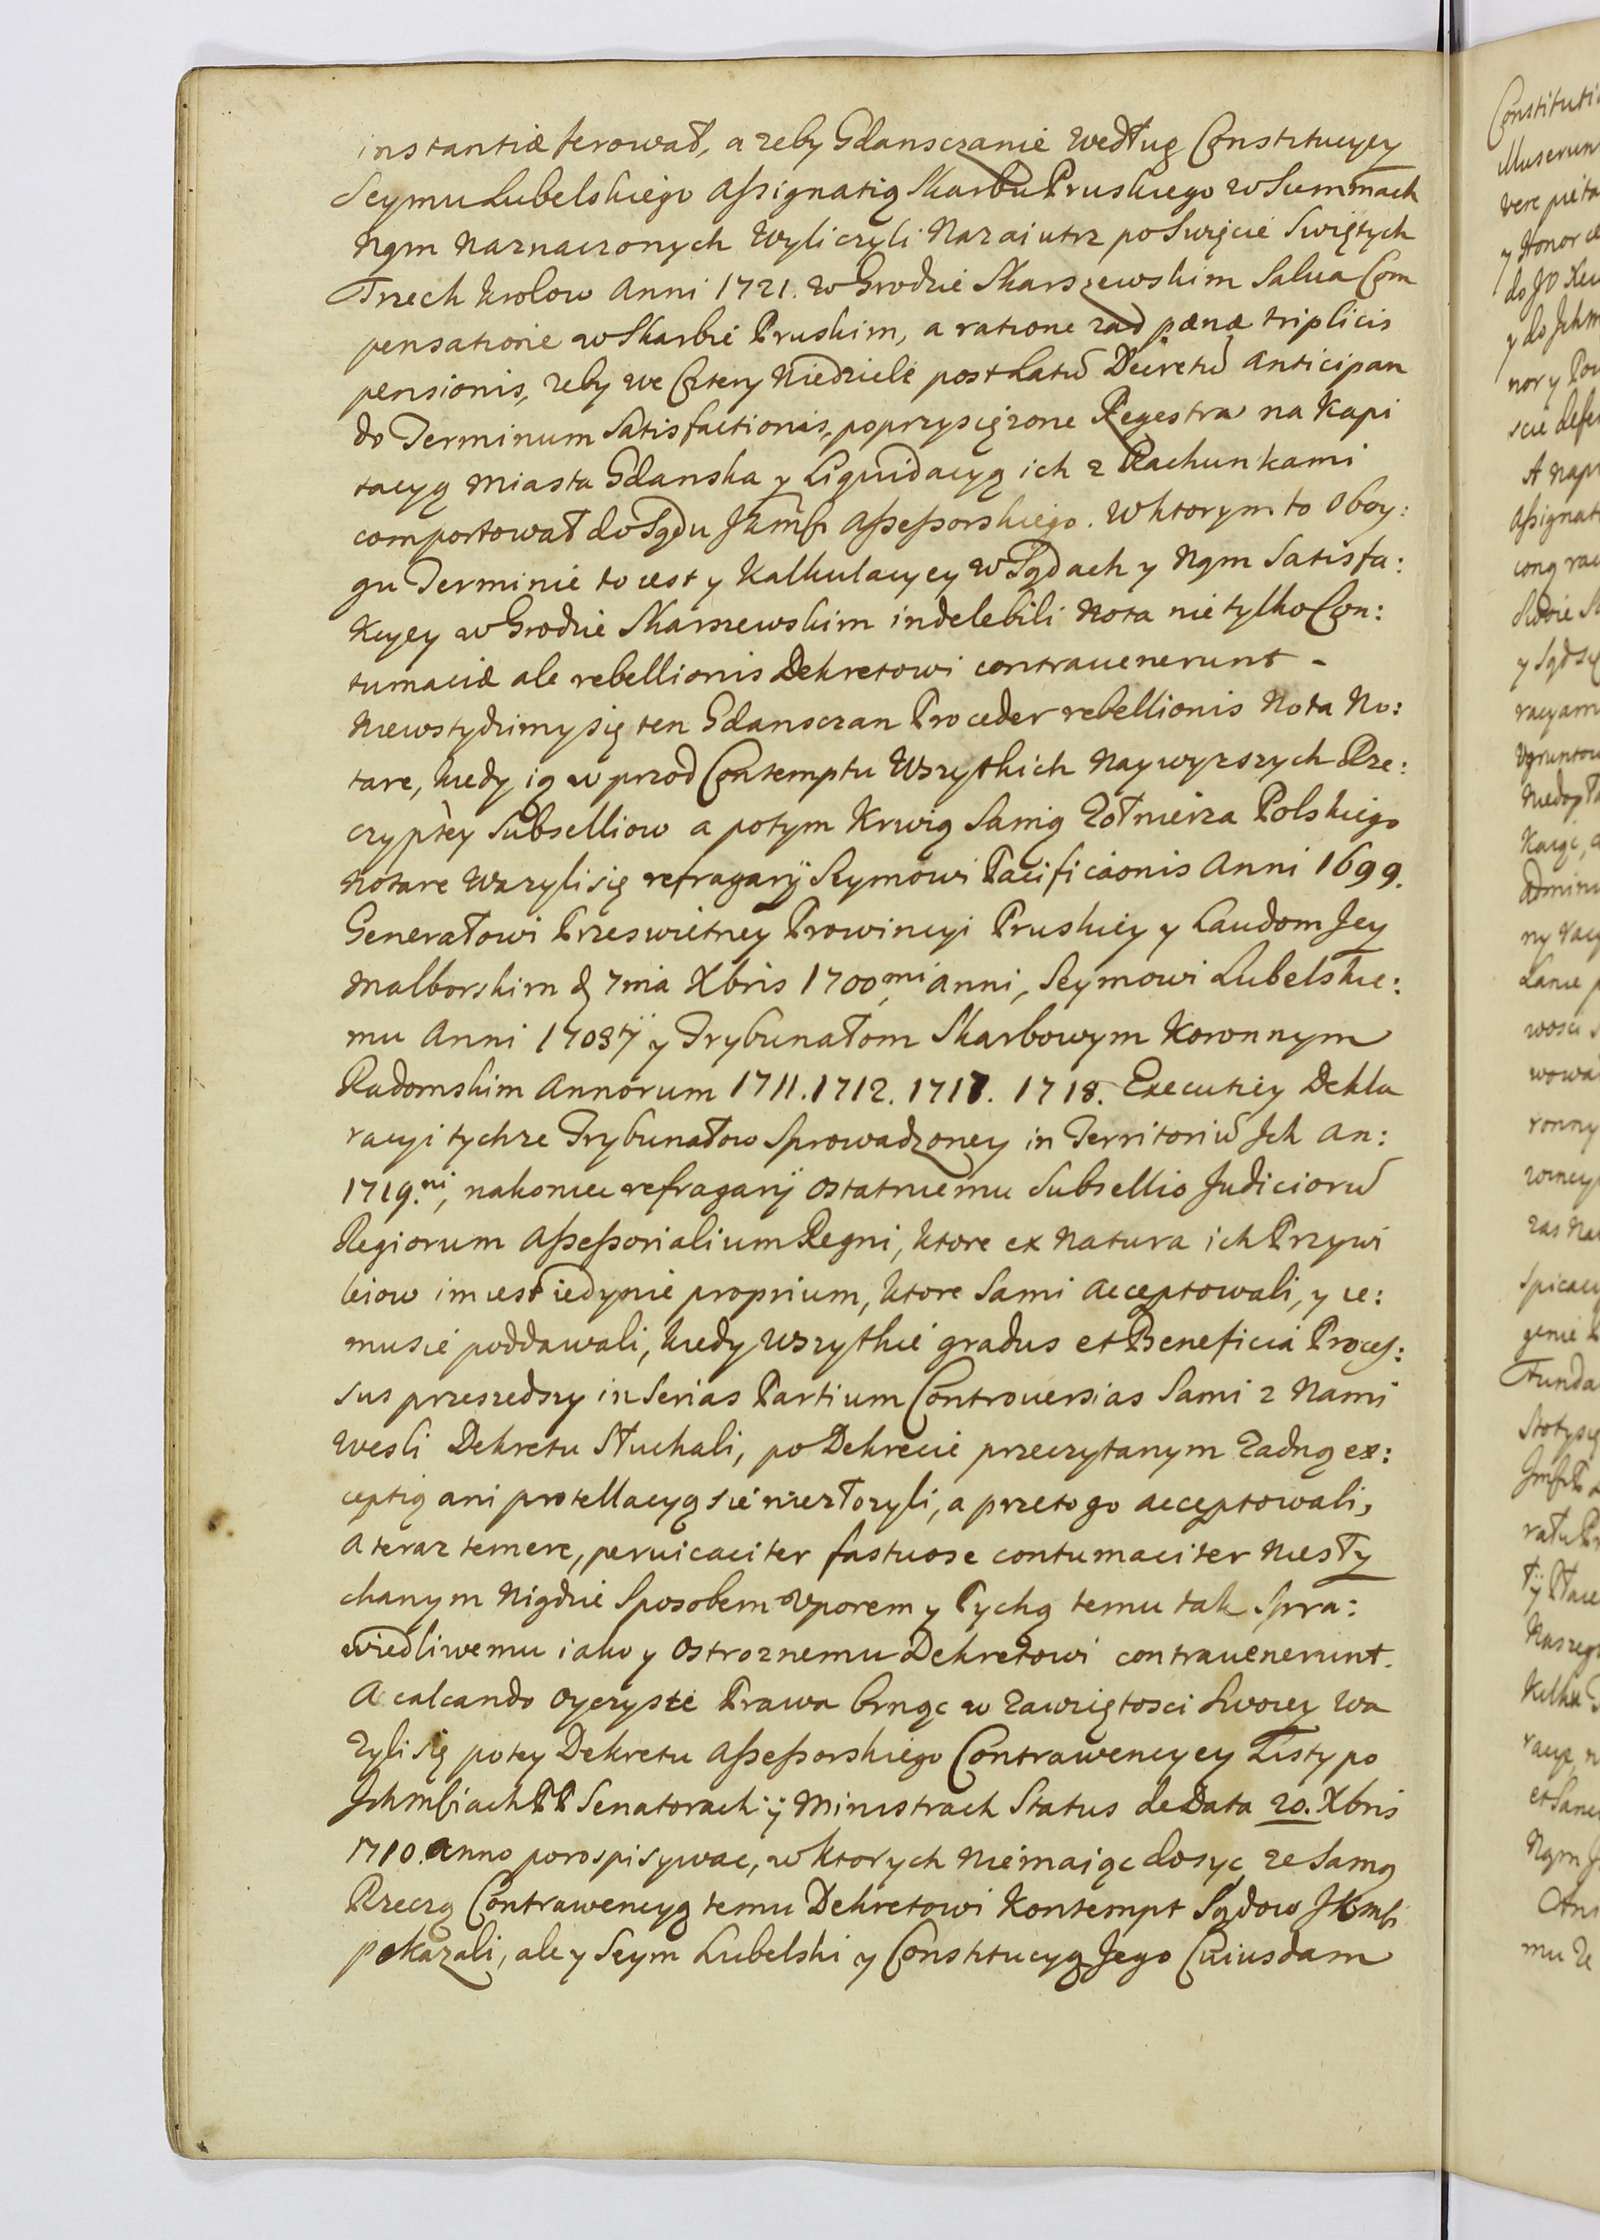 instantiæ ferował, a zeby Gdansczanie według Constytucyey
Seymu Lubelskiego Assignatią Skarbu Pruskiego w Summach
Ngm Naznaczonych Wyliczyli Nazaiutrz po Swięcie Swiętych
Trzech Krolow Anni 1721. w Grodzie Skarszewskim Salua Com
pensatione w Skarbie Pruskim, a ratione zad pænæ triplicis
pensionis, zeby we Cztery Niedziele post Latũ Decretũ Anticipan
do Terminum Satisfactionis, poprzysięzone Regestra na Kapi
tacyą Miasta Gdanska y Liquidacyą ich z Rachunkami
comportował do Sądu JKmsi Assessorskiego. W ktorym to oboy:
gu Terminie to iest y Kalkulacyey w Sądach y Ngm Satisfa:
kcyey w Grodzie Skarszewskim indelebili Nota nie tylko Con:
tumaciæ ale rebellionis Dekretowi contrauenerunt -
Niewstydzimy się ten Gdansczan Proceder rebellionis Nota No:
tare, kiedy ią w przod Contemptu Wszytkich Naywyzszych Rze:
czyptey Subselliow a potym Krwią Samą Zołnierza Polskiego
notare Wazyli się refragarij Seymowi Pacificãonis Anni 1699.
Generałowi Przeswietney Prowincyi Pruskiey y Laudom Jey
Malborskim d 7ma Xbris 1700.mi anni, Seymowi Lubelskie:
mu Anni 1703tij y Trybunałom Skarbowym Koronnym
Radomskim Annorum 1711. 1712. 1717. 1718. Executiey Dekla
racyi tychze Trybunałow Sprowadzoney in Territoriũ Jch An:
1719.ni, nakoniec refragarij ostatniemu Subsellio Judiciorũ
Regiorum Assessorialium Regni, ktore ex Natura ich Przywi
leiow im iest iedynie proprium, ktore Sami Acceptowali, y ie:
musie poddawali, kiedy Wszytkie gradus et Beneficia Proces:
sus przeszedszy in Serias Partium Controuersias Sami z Nami
Wesli Dekretu Słuchali, po Dekrecie przeczytanym Zadną ex:
ceptią ani protellacyą sie niezłozyli, a przeto go acceptowali,
A teraz temere, peruicaciter fastuose contumaciter Niesły
chanym Nigdzie Sposobem Vporem y Pychą temu tak Spra:
wiedliwemu iako y Ostroznemu Dekretowi contrauenerunt.
A calcando oyczyste Prawa brnąc w Zawziętosci Swoiey Wa
Zyli się po tey Dekretu Assessorskiego Contrawencyey Listy po
Jchmsiach PP Senatorach ÿ Ministrach Status de Data 20. Xbris
1710. Anno porospisywac, w ktorych Niemaiąc dosyc ze Samą
Rzeczą Contrawencyą temu Dekretowi Kontempt Sądow JKmsi
pokazali, ale y Seym Lubelski y Constitucyą Jego Cuiusdam